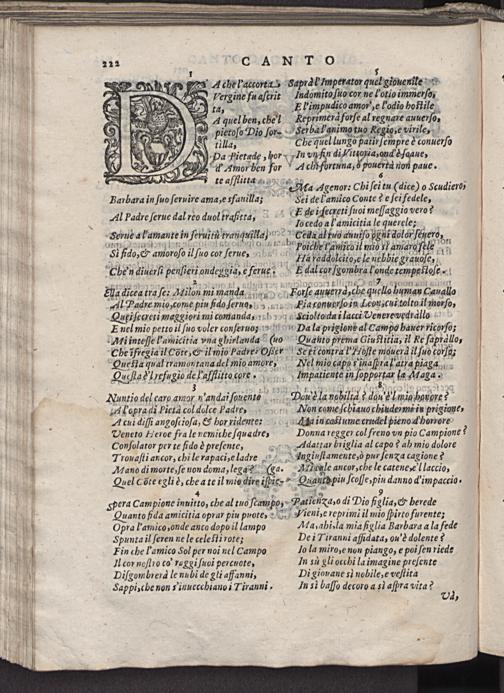 222
CANTO
1
DA che l'accorta
Vergine fu ascrit
ta,
A quel ben, che'l
pietoso Dio sor-
tilla,
Da Pietade, hor
d'Amor ben for
te afflitta
Barbara in suo seruire ama, e sfauilla;
Al Padre serue dal reo duol trafitta,
Serue a l'amante in seruitù tranquilla;
Sì fido, & amoroso il suo cor serue,
Che'n diuersi pensieri ondeggia, e ferue.
2
Ella dicea tra se: Milon mi manda
Al Padre mio, come più fido seruo,
Quei secreti maggiori mi comanda,
E nel mio petto il suo voler conseruo;
Mi intesse l'amicitia vna ghirlanda (uo
Che i fregia il Cōte, & il mio Padre Oßer
Questa qual tramontana del mio amore,
Questa è'l refugio de l'afflitto core.
3
Nuntio del caro amor n'andai souente
A l'opra di Pietà col dolce Padre,
A cui dissi angosciosa, & hor ridente:
Veneto Heroe fra le nemiche squadre,
Consolator per te fido è presente,
Trouasti ancor, chi le rapaci, e ladre
Mano di morte, se non doma, lega? (ga.
Quel Cōte egli è, che a te il mio dire ispie-
4
Spera Campione inuitto, che al tuo scampo,
Quanto fida amicitia oprar piu puote,
Opra l'amico, onde anco dopo il lampo
Spunta il seren ne le celesti rote;
Fin che l'amico Sol per noi nel Campo
Il cor nostro co' raggi suoi percuote,
Disgombrerà le nubi de gli affanni,
Sappi, che non s'inuecchiano i Tiranni.
5
Saprà l'Imperator quel giouenile
Indomito suo cor ne l'otio immerso,
E l'impudico amor', e l'odio hostile
Reprimerà forse al regnare auuerso,
Serba l'animo tuo Regio, e virile,
Che quel lungo patir sempre è conuerso
In vn fin di Vittoria, ond'è
A chi fortuna, ò pouertà non paue.
6
Ma Agenor: Chi sei tu (dice) o Scudiero;
Sei de l'amico Conte? e sei fedele,
E de i secreti suoi messaggio vero?
Io cedo a l'amicitia le querele;
Ceda al tuo auuiso ogni dolor seuero,
Poiche l'amico il mio sì amaro fele
Ha raddolcito, e le nebbie grauose,
E dal cor sgombra l'onde tempestose.
7
Forse auuerrà, che quello human Cauallo
Fia conuerso in Leon, cui tolto il morso,
Sciolto da i lacci Venere vedràllo
Da la prigione al Campo hauer ricorso;
Quanto prema Giustitia, il Re sapràllo,
Se ei contra l'Hoste mouerà il suo corso;
Nel mio capo s'inaspra l'atra piaga
Impatiente in sopportar la Maga.
8
Dou'è la nobiltà? dou'è'l mio honore?
Non come schiauo chiudermi in prigione,
Ma in costume crudel pieno d'horrore
Donna regger col freno vn pio Campione?
Adattar briglia al capo? ahi mio dolore
Ingiustamente, ò pur senza cagione?
Mi cale ancor, che le catene, e'l laccio,
Quanto piu scosse, piu danno d'impaccio.
9
Patienza, o di Dio figlia, & herede
Vieni, e reprimi il mio spirto furente;
Ma, ahi, la mia figlia Barbara a la fede
De i Tiranni affidata, ou'è dolente?
Io la miro, e non piango, e poi sen riede
In sù gli occhi la imagine presente
Di giouane sì nobile, e vestita
In sì basso decoro a sì aspra vita?
Và,